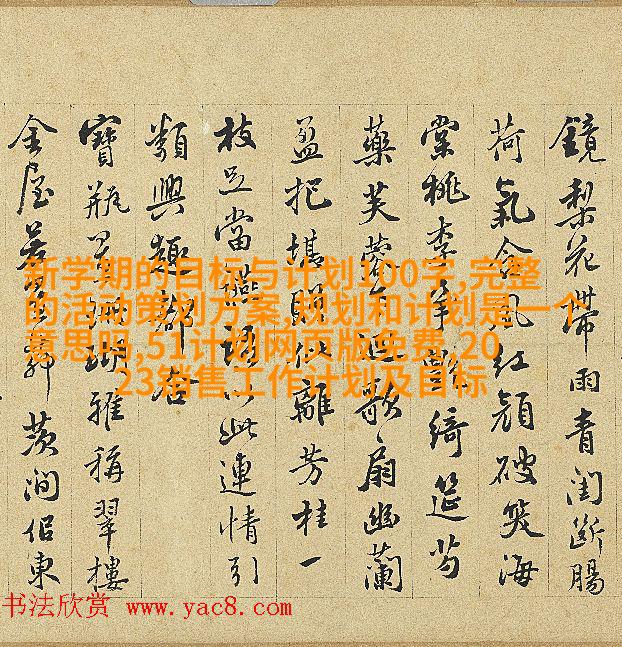 鏡梨花帶雨青閨斷腸
荷氣含風紅顏破笑海
棠桃李爭艷綺筵芍
藥芙蓉迎歌扇幽蘭
盈把堪贈似離芳桂一
枝足當以此連情引
類興趣都
寶瓶珊瑚雅稱翠樓
金屋若茨澗侶東
新学期的目标与计划300字,完整
的活动策划方案,规划和计划是一个
意思吗,51计划网页版免费,20
23销售工作计划及目标
书法欣赏 www.yac8.com